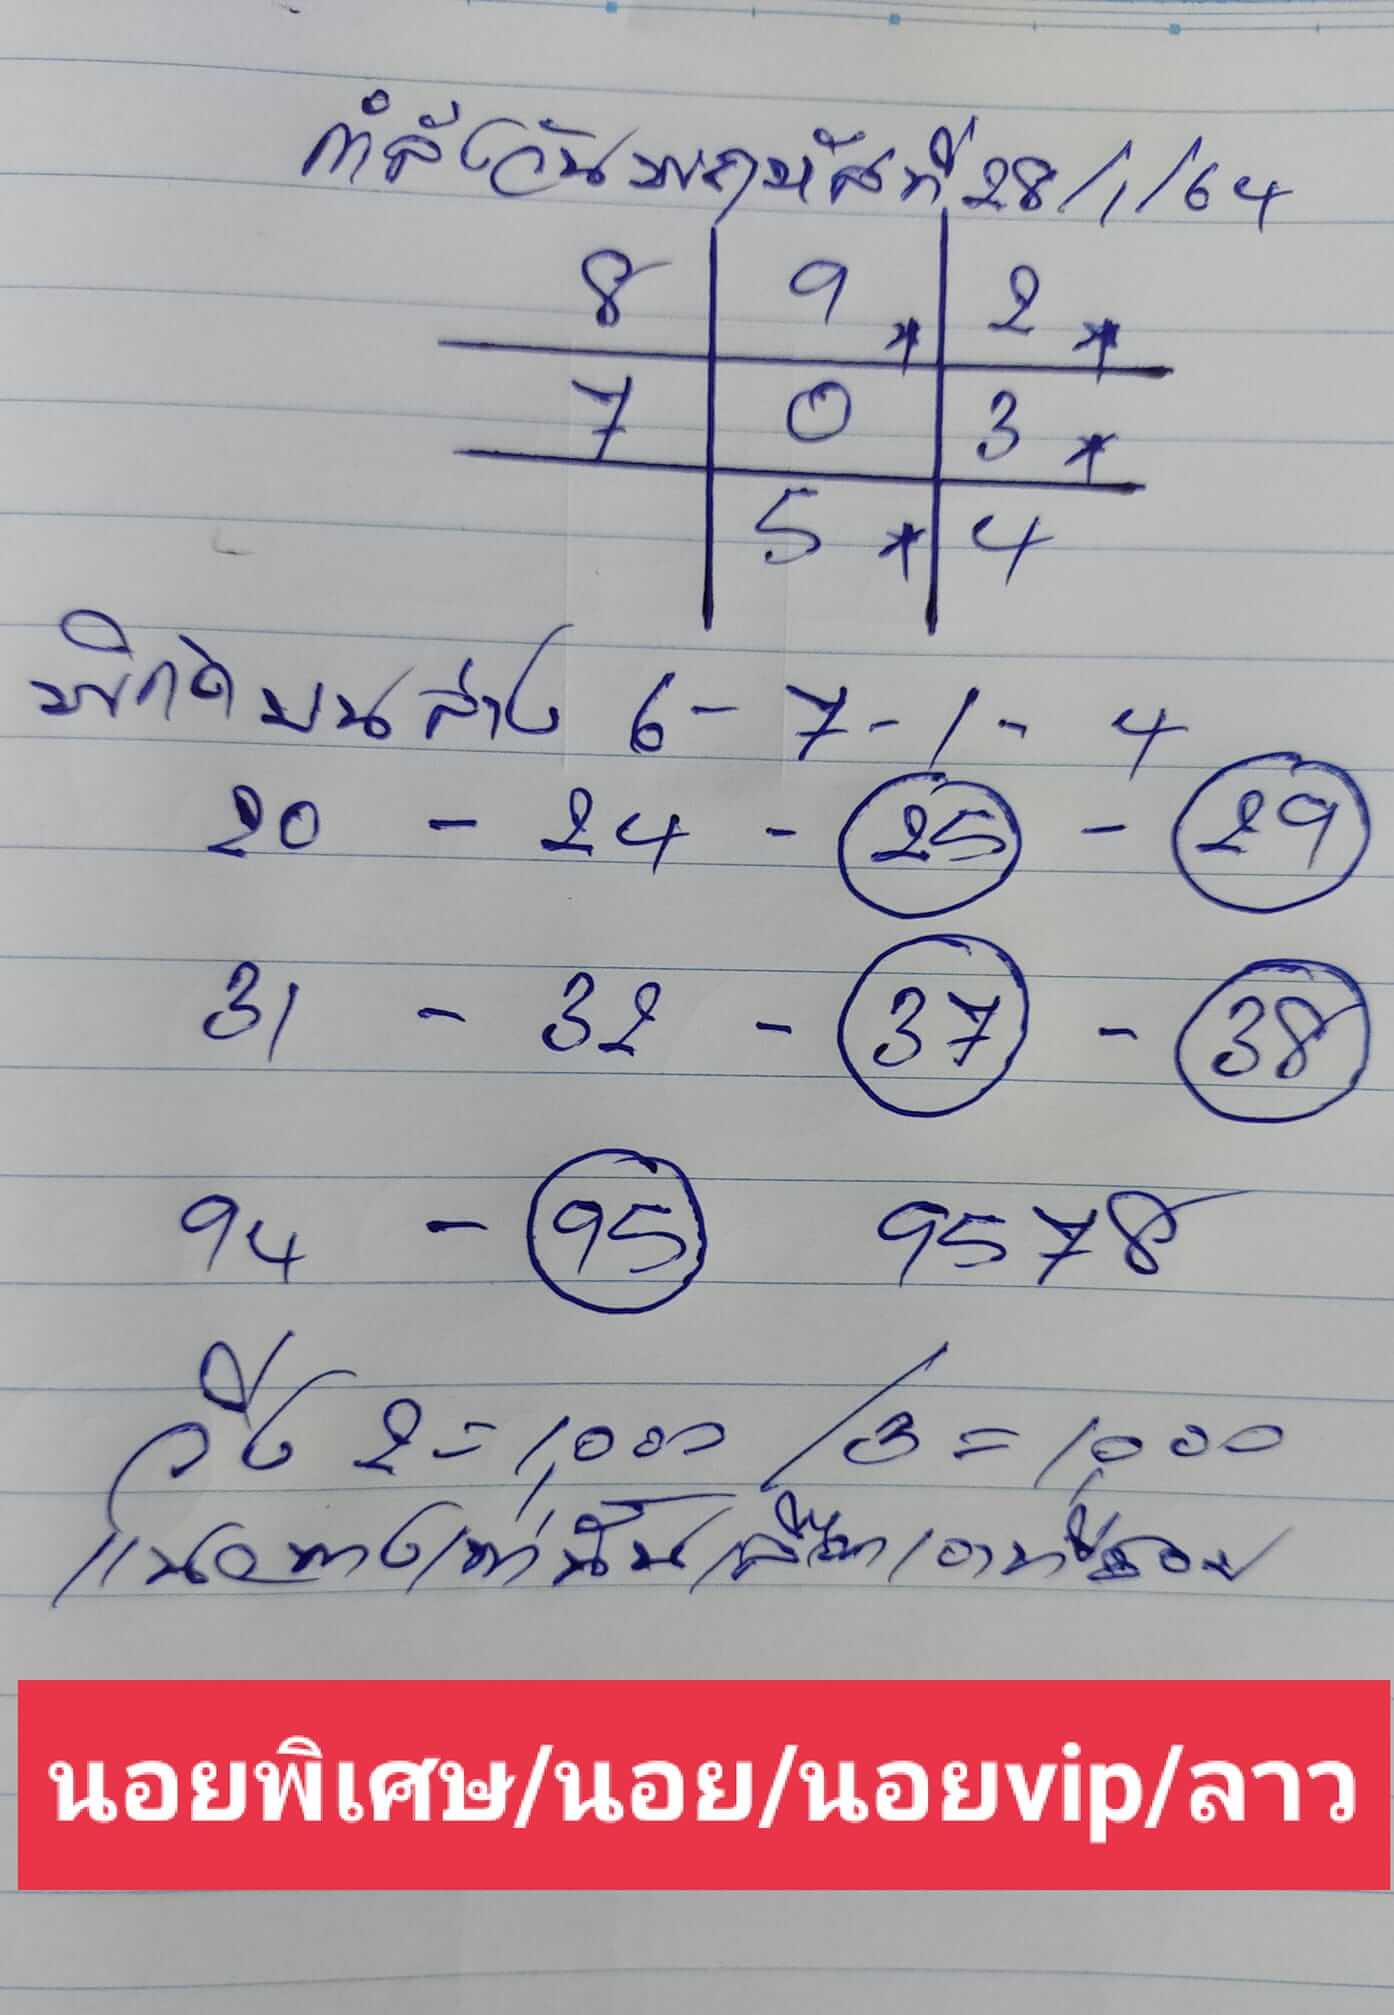 กำลังวันพฤหัสที่ 28/1/64
8 9* 2*
7 0 3*
5* 4
พิกัดบนล่าง 6-7-1-4
20 - 24 - 25 - 29
31 - 32 - 37 - 38
94 - 95 9578
วิ่ง 2=1,000 /3=1,000
แนวทางเท่านั้น
นอยพิเศษ/นอย/นอยvip/ลาว